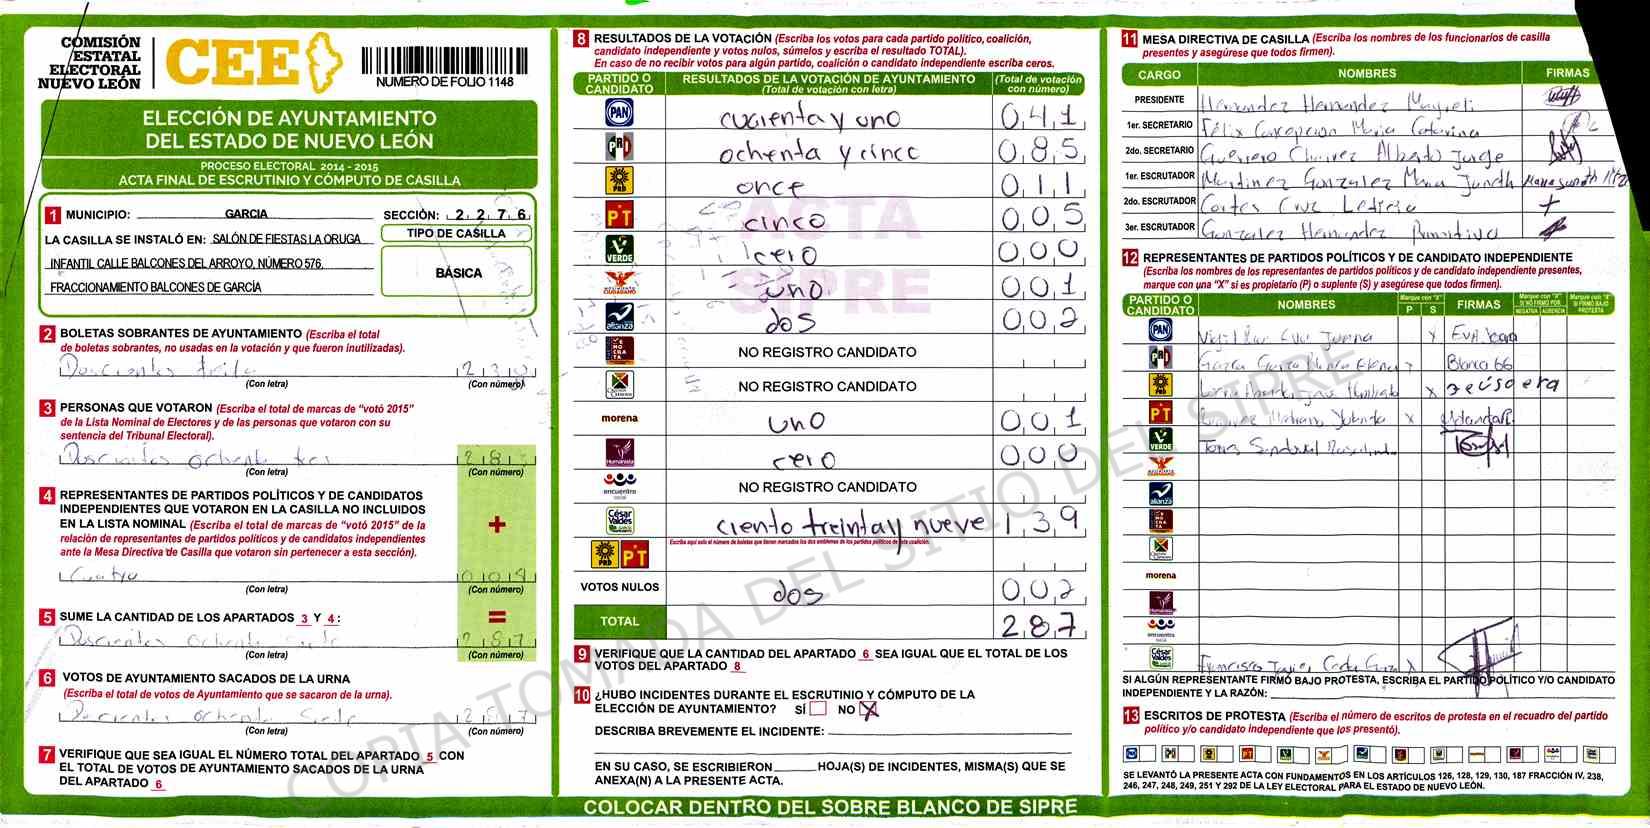 COMISIÓN
ESTATAL
ELECTORAL
NUEVO LEÓN
CEE
NUMERO DE FOLIO 1148
ELECCIÓN DE AYUNTAMIENTO
DEL ESTADO DE NUEVO LEÓN
PROCESO ELECTORAL 2014 - 2015
ACTA FINAL DE ESCRUTINIO Y CÓMPUTO DE CASILLA
1 MUNICIPIO: GARCIA SECCIÓN: 2 2 7 6
LA CASILLA SE INSTALÓ EN: SALÓN DE FIESTAS LA ORUGA
INFANTIL CALLE BALCONES DEL ARROYO, NÚMERO 576,
FRACCIONAMIENTO BALCONES DE GARCÍA
TIPO DE CASILLA
BÁSICA
2 BOLETAS SOBRANTES DE AYUNTAMIENTO (Escriba el total
de boletas sobrantes, no usadas en la votación y que fueron inutilizadas).
Doscientos treita 2 3 0
(Con letra) (Con número)
3 PERSONAS QUE VOTARON (Escriba el total de marcas de "votó 2015"
de la Lista Nominal de Electores y de las personas que votaron con su
sentencia del Tribunal Electoral).
Doscientos ochenta tres 2 8
(Con letra) (Con número)
4 REPRESENTANTES DE PARTIDOS POLÍTICOS Y DE CANDIDATOS
INDEPENDIENTES QUE VOTARON EN LA CASILLA NO INCLUIDOS
EN LA LISTA NOMINAL (Escriba el total de marcas de "votó 2015" de la
relación de representantes de partidos políticos y de candidatos independientes
ante la Mesa Directiva de Casilla que votaron sin pertenecer a esta sección).
+
Cuatro 0 0 4
(Con letra) (Con número)
5 SUME LA CANTIDAD DE LOS APARTADOS 3 Y 4: =
Doscientos ochenta Siete 2 8 7
(Con letra) (Con número)
6 VOTOS DE AYUNTAMIENTO SACADOS DE LA URNA
(Escriba el total de votos de Ayuntamiento que se sacaron de la urna).
Doscientos ochenta Siete 2 8 7
(Con letra) (Con número)
7 VERIFIQUE QUE SEA IGUAL EL NÚMERO TOTAL DEL APARTADO 5 CON
EL TOTAL DE VOTOS DE AYUNTAMIENTO SACADOS DE LA URNA
DEL APARTADO 6
8 RESULTADOS DE LA VOTACIÓN (Escriba los votos para cada partido político, coalición,
candidato independiente y votos nulos, súmelos y escriba el resultado TOTAL).
En caso de no recibir votos para algún partido, coalición o candidato independiente escriba ceros.
PARTIDO O CANDIDATO RESULTADOS DE LA VOTACIÓN DE AYUNTAMIENTO (Total de votación con letra) (Total de votación con número)
PAN cuarenta y uno 0 4 1
PRI ochenta y cinco 0 8 5
PRD once 0 1 1
PT cinco 0 0 5
VERDE cero 0 0 0
MOVIMIENTO CIUDADANO uno 0 0 1
alianza dos 0 0 2
DEMÓCRATA NO REGISTRO CANDIDATO
NO REGISTRO CANDIDATO
morena uno 0 0 1
Humanista cero 0 0 0
encuentro social NO REGISTRO CANDIDATO
César Valdés ciento treinta y nueve 1 3 9
PRD PT Escriba aquí solo el número de boletas que tienen marcados los dos emblemas de los partidos políticos de esta coalición.
VOTOS NULOS dos 0 0 2
TOTAL 2 8 7
ACTA
SIPRE
9 VERIFIQUE QUE LA CANTIDAD DEL APARTADO 6 SEA IGUAL QUE EL TOTAL DE LOS
VOTOS DEL APARTADO 8
10 ¿HUBO INCIDENTES DURANTE EL ESCRUTINIO Y CÓMPUTO DE LA
ELECCIÓN DE AYUNTAMIENTO? SÍ NO X
DESCRIBA BREVEMENTE EL INCIDENTE:
EN SU CASO, SE ESCRIBIERON HOJA(S) DE INCIDENTES, MISMA(S) QUE SE
ANEXA(N) A LA PRESENTE ACTA.
COLOCAR DENTRO DEL SOBRE BLANCO DE SIPRE
11 MESA DIRECTIVA DE CASILLA (Escriba los nombres de los funcionarios de casilla
presentes y asegúrese que todos firmen).
CARGO NOMBRES FIRMAS
PRESIDENTE Hernandez Hernandez Mayreli
1er. SECRETARIO Félix Concepcion Maria Catarina
2do. SECRETARIO Guerrero Chavez Alberto Jorge
1er. ESCRUTADOR Martinez Gonzalez Maria Janeth
2do. ESCRUTADOR Cortes Cruz Leticia
3er. ESCRUTADOR Gonzalez Hernandez Primitiva
12 REPRESENTANTES DE PARTIDOS POLÍTICOS Y DE CANDIDATO INDEPENDIENTE
(Escriba los nombres de los representantes de partidos políticos y de candidato independiente presentes,
marque con una "X" si es propietario (P) o suplente (S) y asegúrese que todos firmen).
PARTIDO O CANDIDATO NOMBRES Marque con "X" P S FIRMAS Marque con "X" SI NO FIRMÓ POR: NEGATIVA AUSENCIA Marque con "X" SI FIRMÓ BAJO PROTESTA
PAN Juana X Eva
PRI Garza Garza Blanca Elena Blanca GG
PRD X
PT Yolanda X
VERDE Torres Sandoval
MOVIMIENTO CIUDADANO
alianza
DEMÓCRATA
morena
Humanista
encuentro social
César Valdés Francisco Javier X
SI ALGÚN REPRESENTANTE FIRMÓ BAJO PROTESTA, ESCRIBA EL PARTIDO POLÍTICO Y/O CANDIDATO
INDEPENDIENTE Y LA RAZÓN:
13 ESCRITOS DE PROTESTA (Escriba el número de escritos de protesta en el recuadro del partido
político y/o candidato independiente que los presentó).
SE LEVANTÓ LA PRESENTE ACTA CON FUNDAMENTOS EN LOS ARTÍCULOS 126, 128, 129, 130, 187 FRACCIÓN IV, 238,
246, 247, 248, 249, 251 Y 292 DE LA LEY ELECTORAL PARA EL ESTADO DE NUEVO LEÓN.
COPIA TOMADA DEL SITIO DEL SIPRE